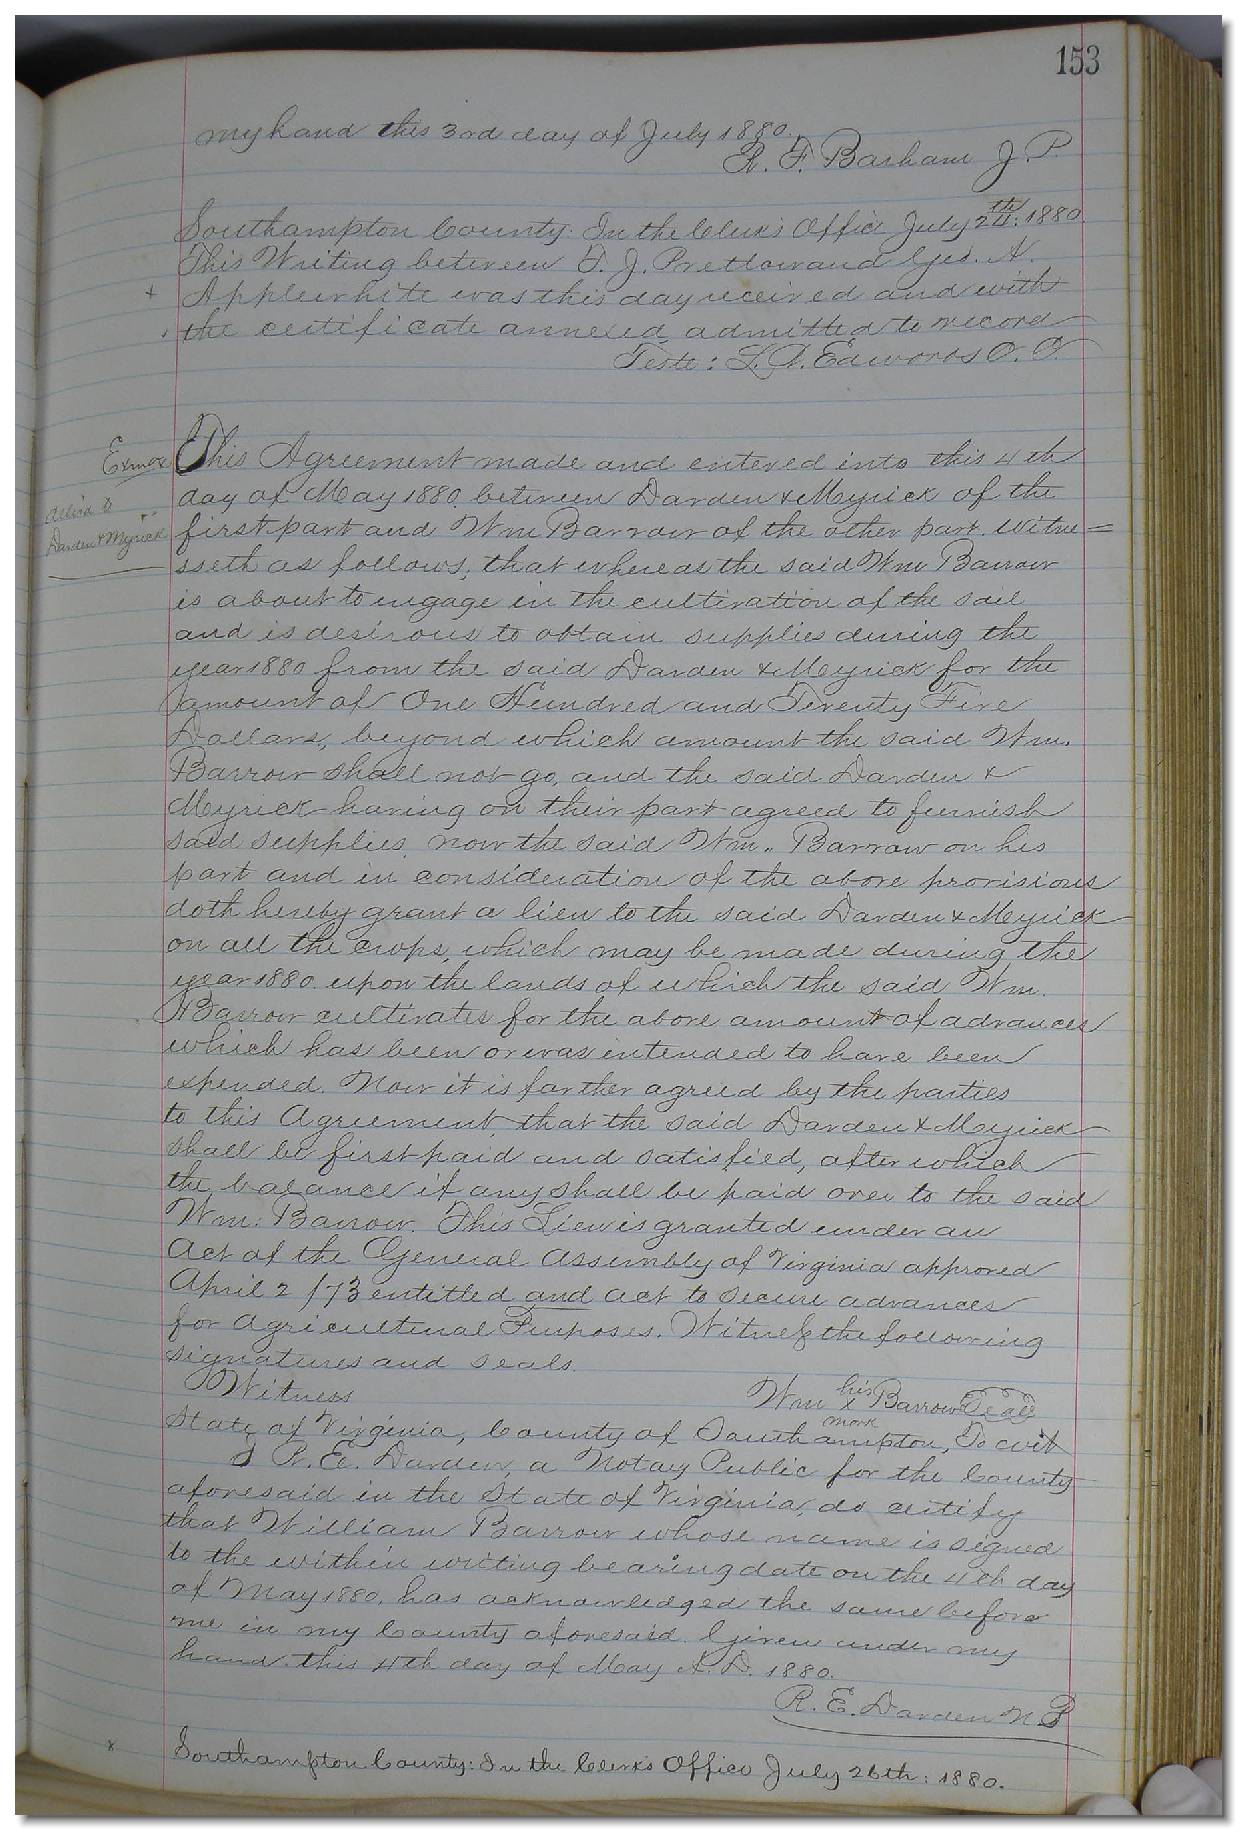 153
my hand this 3rd day of July 1880.
R. F. Barham J. P.
Southampton County: In the Clerk's Office July 24th: 1880.
This Writing between T. J. Pretlow and Geo. A.
Applewhite was this day received and with
the certificate annexed, admitted to record
Teste: L. A. Edwards C. C.
Exmd
Deliv'd to
Darden & Myrick
This Agreement made and entered into this 4th
day of May 1880. between Darden & Myrick of the
first part and Wm Barrow of the other part. Witne=
sseth as follows, that whereas the said Wm Barrow
is about to engage in the cultivation of the soil
and is desirous to obtain supplies during the
year 1880 from the said Darden & Myrick for the
amount of One Hundred and Twenty Five
Dollars, beyond which amount the said Wm.
Barrow shall not go, and the said Darden &
Myrick having on their part agreed to furnish
said supplies, now the said Wm.. Barrow on his
part and in consideration of the above provisions
doth hereby grant a lien to the said Darden & Myrick
on all the crops, which may be made during the
year 1880. upon the lands of which the said Wm.
Barrow cultivates for the above amount of advances
which has been or was intended to have been
expended. Now it is farther agreed by the parties
to this Agreement, that the said Darden & Myrick
shall be first paid and satisfied, after which
the balance if any shall be paid over to the said
Wm: Barrow. This Lien is granted under an
Act of the General Assembly of Virginia approved
April 2 /73 entitled and act to secure advances
for Agricultural Purposes. Witness the following
signatures and seals.
Witness Wm his x mark Barrow Seal
State of Virginia, County of Southampton, To wit
I R. E. Darden, a Notay Public for the County
aforesaid in the State of Virginia, do certify
that William Barrow whose name is signed
to the within writing bearing date on the 4th day
of May 1880, has acknowledged the same before
me in my County aforesaid. Given under my
hand this 4th day of May A. D. 1880.
R. E. Darden N P
Southampton County: In the Clerk's Office July 26th: 1880.